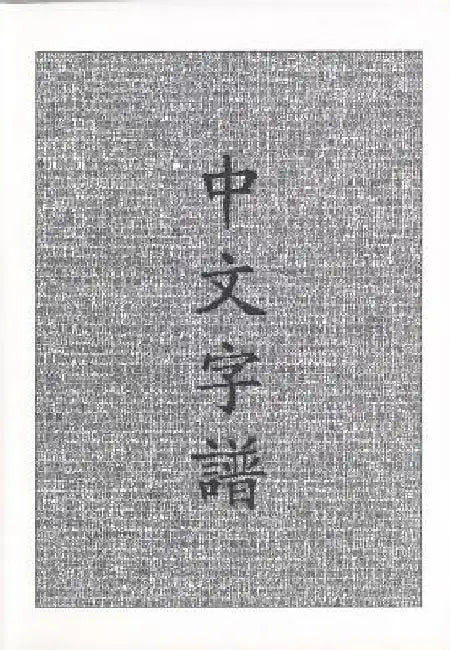 中文字譜